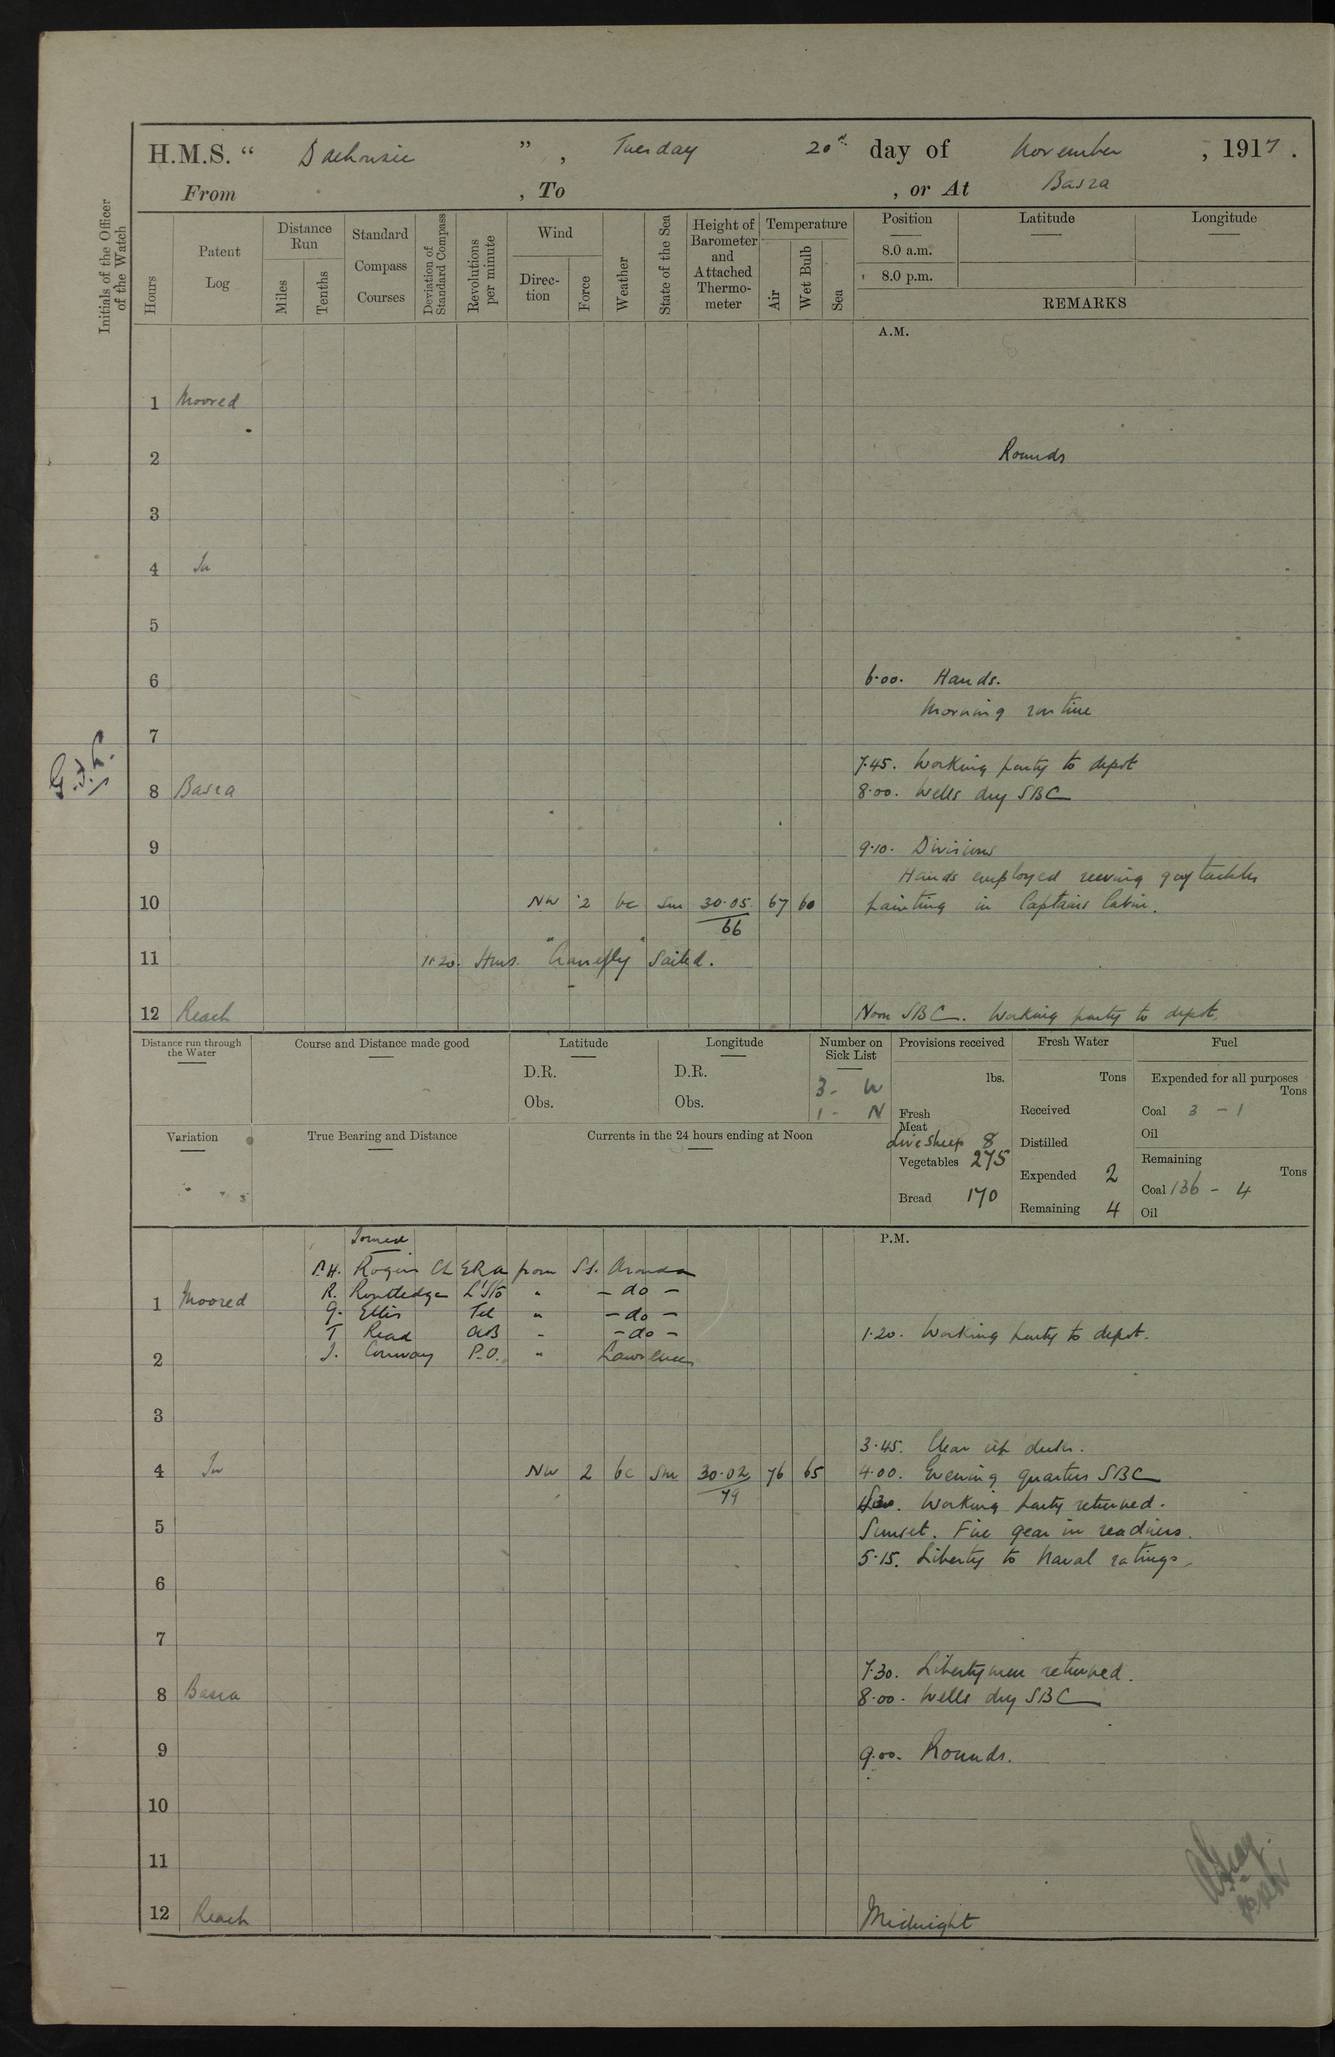 H.M.S. “ Dalhousie ” , Tuesday 20th day of November , 1917 .
From , To , or At Basra
Initials of the Officer of the Watch
Hours
Patent Log
Distance Run
Miles
Tenths
Standard Compass Courses
Deviation of Standard Compass
Revolutions per minute
Wind
Direction
Force
Weather
State of the Sea
Height of Barometer and Attached Thermometer
Temperature
Air
Wet Bulb
Sea
Position Latitude Longitude
8.0 a.m.
8.0 p.m.
REMARKS
A.M.
1 Moored
2 Rounds
3
4 In
5
6 6.00. Hands.
Morning routine
7
7.45. Working party to depot
8 Basra 8.00. Wells dry SBC
9 9.10. Divisions
Hands employed reeving guy tackles
10 NW 2 bc Sm 30.05 67 60 painting in Captains Cabin.
66
11 11.20. Hms. "Cranefly" Sailed.
12 Reach Noon SBC. Working party to depot.
Distance run through the Water
Course and Distance made good
Latitude
D.R.
Obs.
Longitude
D.R.
Obs.
Number on Sick List
3 - W
1 - N
Provisions received
lbs.
Fresh Meat
Live Sheep 8
Vegetables 275
Bread 170
Fresh Water
Tons
Received
Distilled
Expended 2
Remaining 4
Fuel
Expended for all purposes
Tons
Coal 3 - 1
Oil
Remaining
Tons
Coal 136 - 4
Oil
Variation
True Bearing and Distance
Currents in the 24 hours ending at Noon
P.M.
Joined
P.H. Rogers Ch ERA from SS. Aronda
1 Moored R. Routledge L/Sto " - do -
G. Ellis Tel " - do -
T Read AB " - do - 1.20. Working party to depot.
2 J. Conway P.O. " Lawrence
3
3.45. Clear up decks.
4 In NW 2 bc Sm 30.02 76 65 4.00. Evening quarters SBC
79
4.30. Working party returned.
5 Sunset. Fire gear in readiness.
5.15. Liberty to Naval ratings.
6
7
7.30. Libertymen returned.
8 Basra 8.00. Wells dry SBC
9 9.00. Rounds.
10
11
12 Reach Midnight